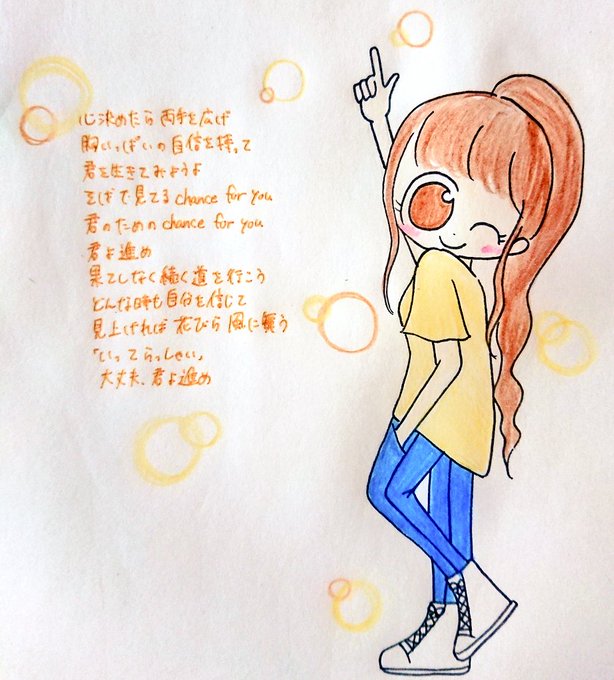 心決めたら 両手を広げ
胸いっぱいの自信を持って
君を生きてみようよ
そばで見てる chance for you
君のための chance for you
君よ進め
果てしなく続く道を行こう
どんな時も自分を信じて
見上げれば 花びら 風に舞う
「いってらっしゃい」
大丈夫、君よ進め